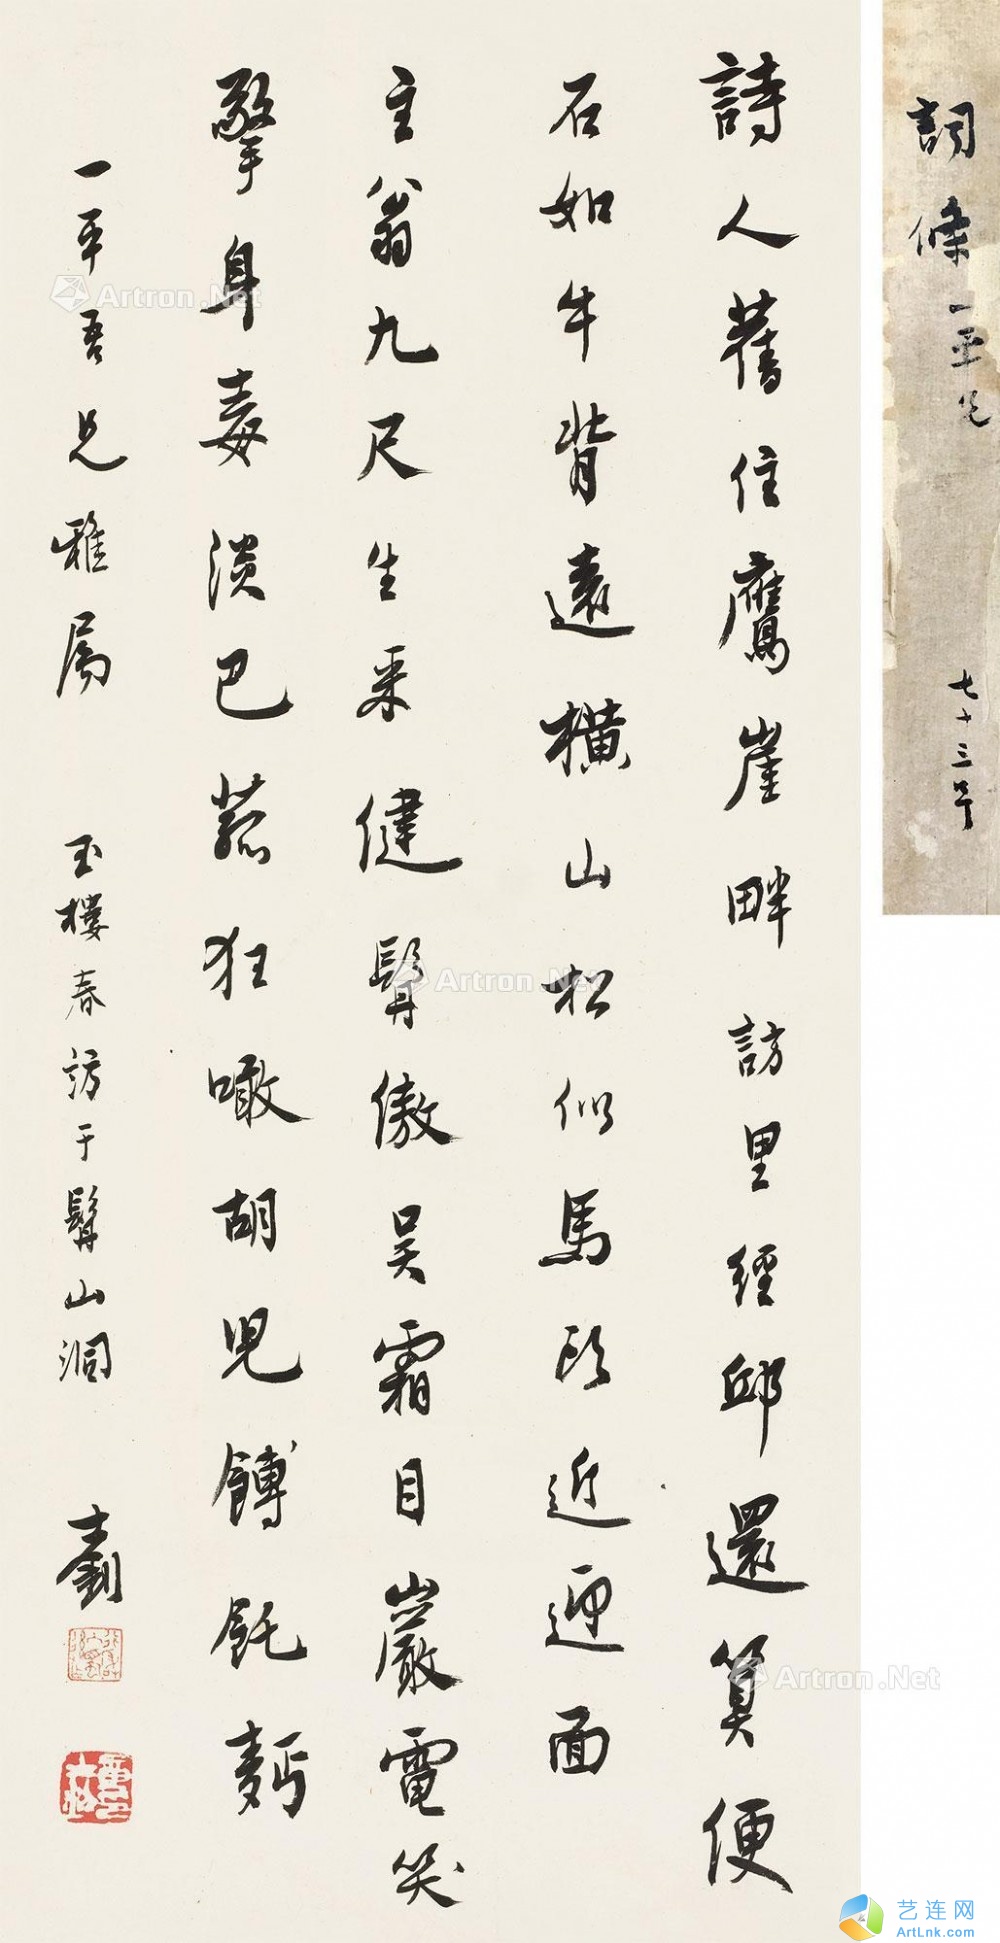 詞條 一平兄
七十三
詩人舊住鷹崖畔訪里經邱還算便
石如牛背遠橫山松似馬頭近迎面
主翁九尺生来健髯傲吳霜目巖電笑
擎身毒淡巴菰狂噉胡兒餺飥麪
一平吾兄雅屬 玉樓春訪于髯山洞 士釗
Artron.Net
Artron.Net
Artron.Net
艺连网
ArtLnk.com